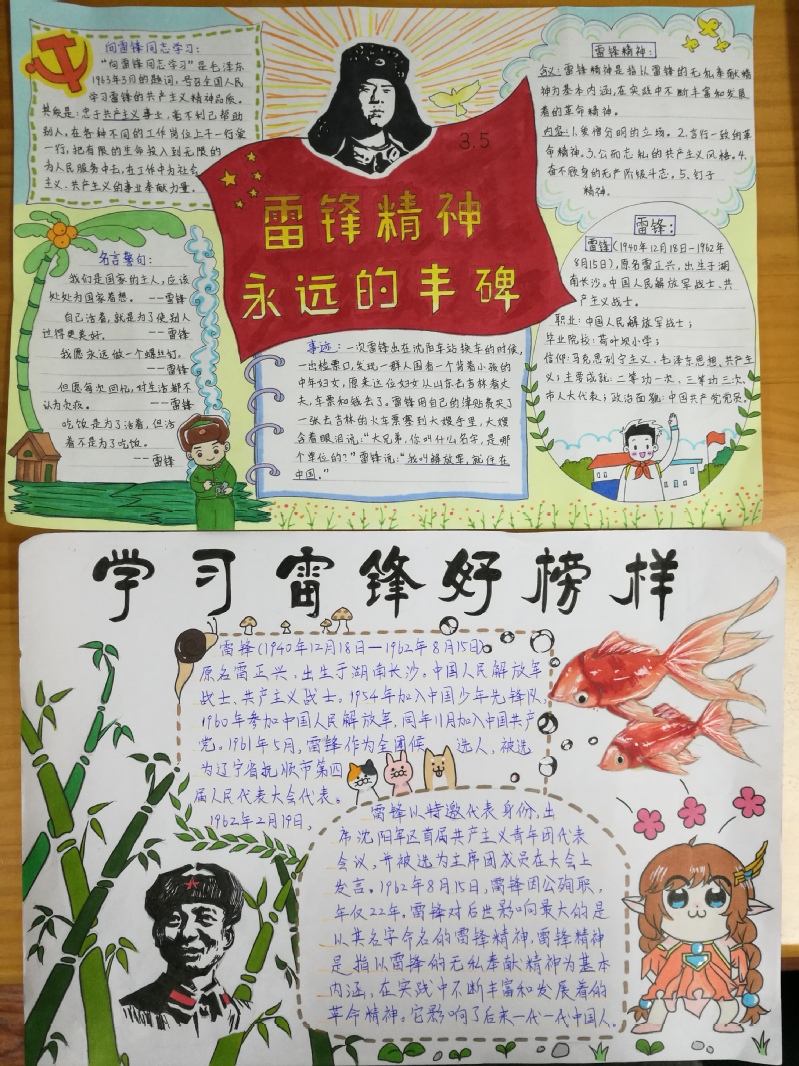 向雷锋同志学习：
“向雷锋同志学习”是毛泽东
1963年3月的题词，号召全国人民
学习雷锋的共产主义精神品质。
其实是：忠于共产主义事业，毫不利己帮助
别人，在各种不同的工作岗位上干一行爱
一行，把有限的生命投入到无限的
为人民服务中去，在工作中为社会
主义、共产主义的事业奉献力量。
3.5
雷锋精神
永远的丰碑
雷锋精神：
含义：雷锋精神是指从雷锋的无私奉献精
神为基本内涵，在实践中不断丰富和发展
着的革命精神。
内容：1.爱憎分明的立场。2.言行一致的革
命精神。3.公而忘私的共产主义风格。4.
奋不顾身的无产阶级斗志。5.钉子
精神。
名言警句：
我们是国家的主人，应该
处处为国家着想。 --雷锋
自己活着，就是为了使别人
过得更美好。 --雷锋
我愿永远做一个螺丝钉。
--雷锋
但愿每次回忆，对生活都不
认为负疚。 --雷锋
吃饭是为了活着，但活
着不是为了吃饭。
--雷锋
事迹：一次雷锋出在沈阳车站换车的时候，
一出检票口，发现一群人围着一个背着小孩的
中年妇女，原来这位妇女从山东去吉林看丈
夫，车票和钱丢了。雷锋用自己的津贴费买了
一张去吉林的火车票塞到大嫂手里，大嫂
含着眼泪说：“大兄弟，你叫什么名字，是哪
个单位的？”雷锋说：“我叫解放军，就住在
中国。”
雷锋：
雷锋（1940年12月18日-1962年
8月15日），原名雷正兴，出生于湖
南长沙，中国人民解放军战士、共
产主义战士。
职业：中国人民解放军战士；
毕业院校：荷叶坝小学；
信仰：马克思列宁主义、毛泽东思想、共产主
义；主要成就：二等功一次，三等功三次，
市人大代表；政治面貌：中国共产党党员。
学习雷锋好榜样
雷锋（1940年12月18日—1962年8月15日）
原名雷正兴，出生于湖南长沙。中国人民解放军
战士、共产主义战士。1954年加入中国少年先锋队，
1960年参加中国人民解放军，同年11月加入中国共产
党。1961年5月，雷锋作为全团候 选人，被选
为辽宁省抚顺市第四
届人民代表大会代表。
1962年2月19日，
雷锋以特邀代表身份，出
席沈阳军区首届共产主义青年团代表
会议，并被选为主席团成员在大会上
发言。1962年8月15日，雷锋因公殉职，
年仅22岁。雷锋对后世影响最大的是
以其名字命名的雷锋精神，雷锋精神
是指从雷锋的无私奉献精神为基本
内涵，在实践中不断丰富和发展着的
革命精神。它影响了后来一代一代中国人。